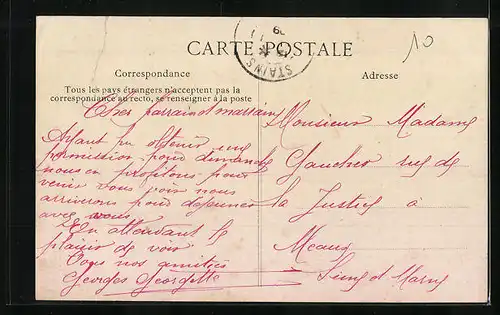 CARTE POSTALE
Correspondance
Tous les pays étrangers n'acceptent pas la
correspondance au recto, se renseigner à la poste
Adresse
10
STAINS
09
Cher parrain et marraine
Ayant pu obtenir une
permission pour dimanche
nous en profitons pour
venir vous voir nous
arriverons pour déjeuner
avec vous
En attendant le
plaisir de voir
Vous nos amitiés
Georges Georgette
Monsieur Madame
Gaucher rue de
la Justice à
Meaux
Seine et Marne